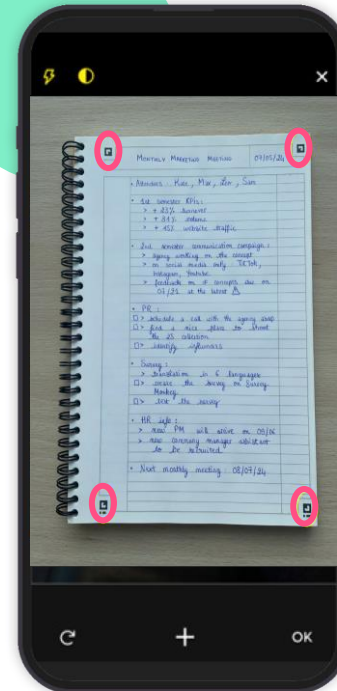 Monthly Marketing Meeting 07/05/24
• Attendees : Kate, Max, Zoe, Sam
• 1st semester KPIs :
> + 23%
> + 31%
> + 45% website traffic
• 2nd semester communication campaign :
> agency working on the concept
> on social media only : TikTok,
Instagram, Youtube
> feedback on concepts due on
07/21 at the latest ⚠
• PR :
> schedule a call with the agency
> find a nice place to shoot
the collection
> identify influencers
• Survey :
> translation in 6 languages
> create the survey on Survey
Monkey
> test the survey
• HR info :
> new PM will arrive on 09/06
> new manager assistant
to be recruited
• Next monthly meeting : 08/07/24
OK